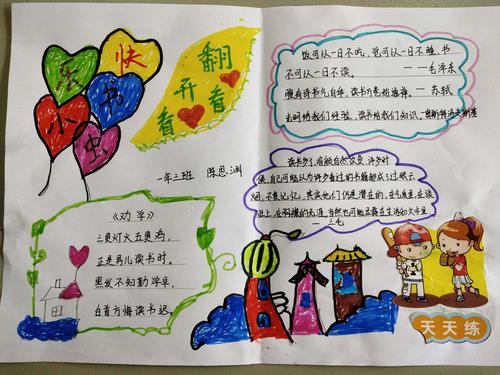 快
乐
书
小
虫
翻
开
看
看
一年三班 陈思渊
《劝学》
三更灯火五更鸡，
正是男儿读书时。
黑发不知勤学早，
白首方悔读书迟
饭可以一日不吃，觉可以一日不睡，书
不可以一日不读。
——毛泽东
腹有诗书气自华，读书万卷始通神。—苏轼
时间给我们经验，读书给我们知识。奥斯特洛夫斯基
读书多了，容颜自然改变，许多时
候，自己可能以为许多看过的书籍都成了过眼云
烟，不复记忆，其实他们仍是潜在的，在气质里，在谈
吐上，在胸襟的无涯，当然也可能显露在生活和文字里
——三毛
天天练